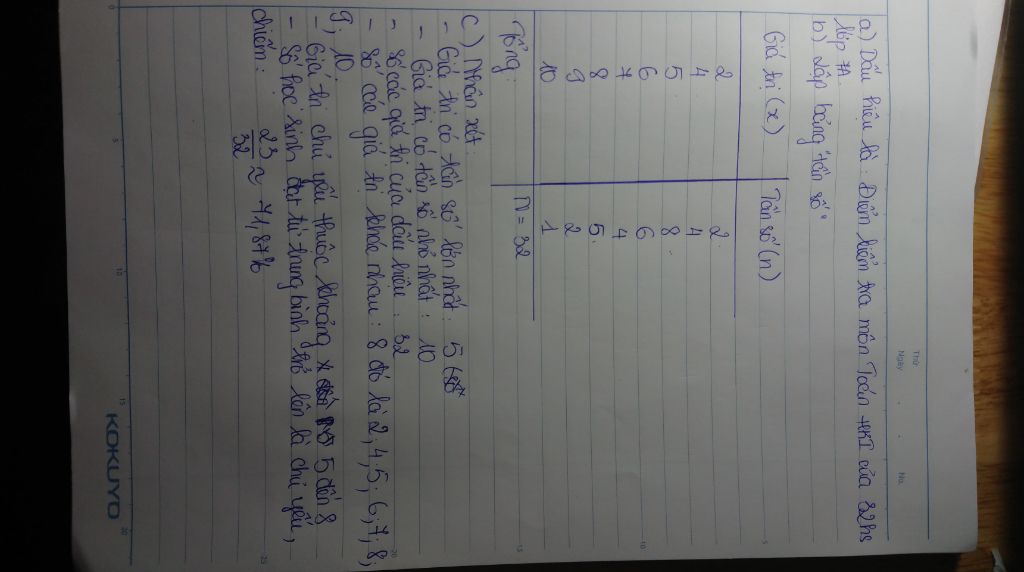 Thứ
Ngày
No.
a) Dấu hiệu là : Điểm kiểm tra môn Toán HKI của 32hs
lớp 7A.
b) Lập bảng "tần số"
Giá trị (x) Tần số (n)
2 2
4 4
5 8
6 6
7 4
8 5
9 2
10 1
Tổng : N = 32
c) Nhận xét :
- Giá trị có tần số lớn nhất : 5
- Giá trị có tần số nhỏ nhất : 10
- Số các giá trị của dấu hiệu : 32
- Số các giá trị khác nhau : 8 đó là 2 ; 4 ; 5 ; 6 ; 7 ; 8 ;
9 ; 10.
- Giá trị chủ yếu thuộc khoảng 5 đến 8
- Số học sinh đạt từ trung bình trở lên là chủ yếu,
chiếm : 23/32 ≈ 71,87%
KOKUYO